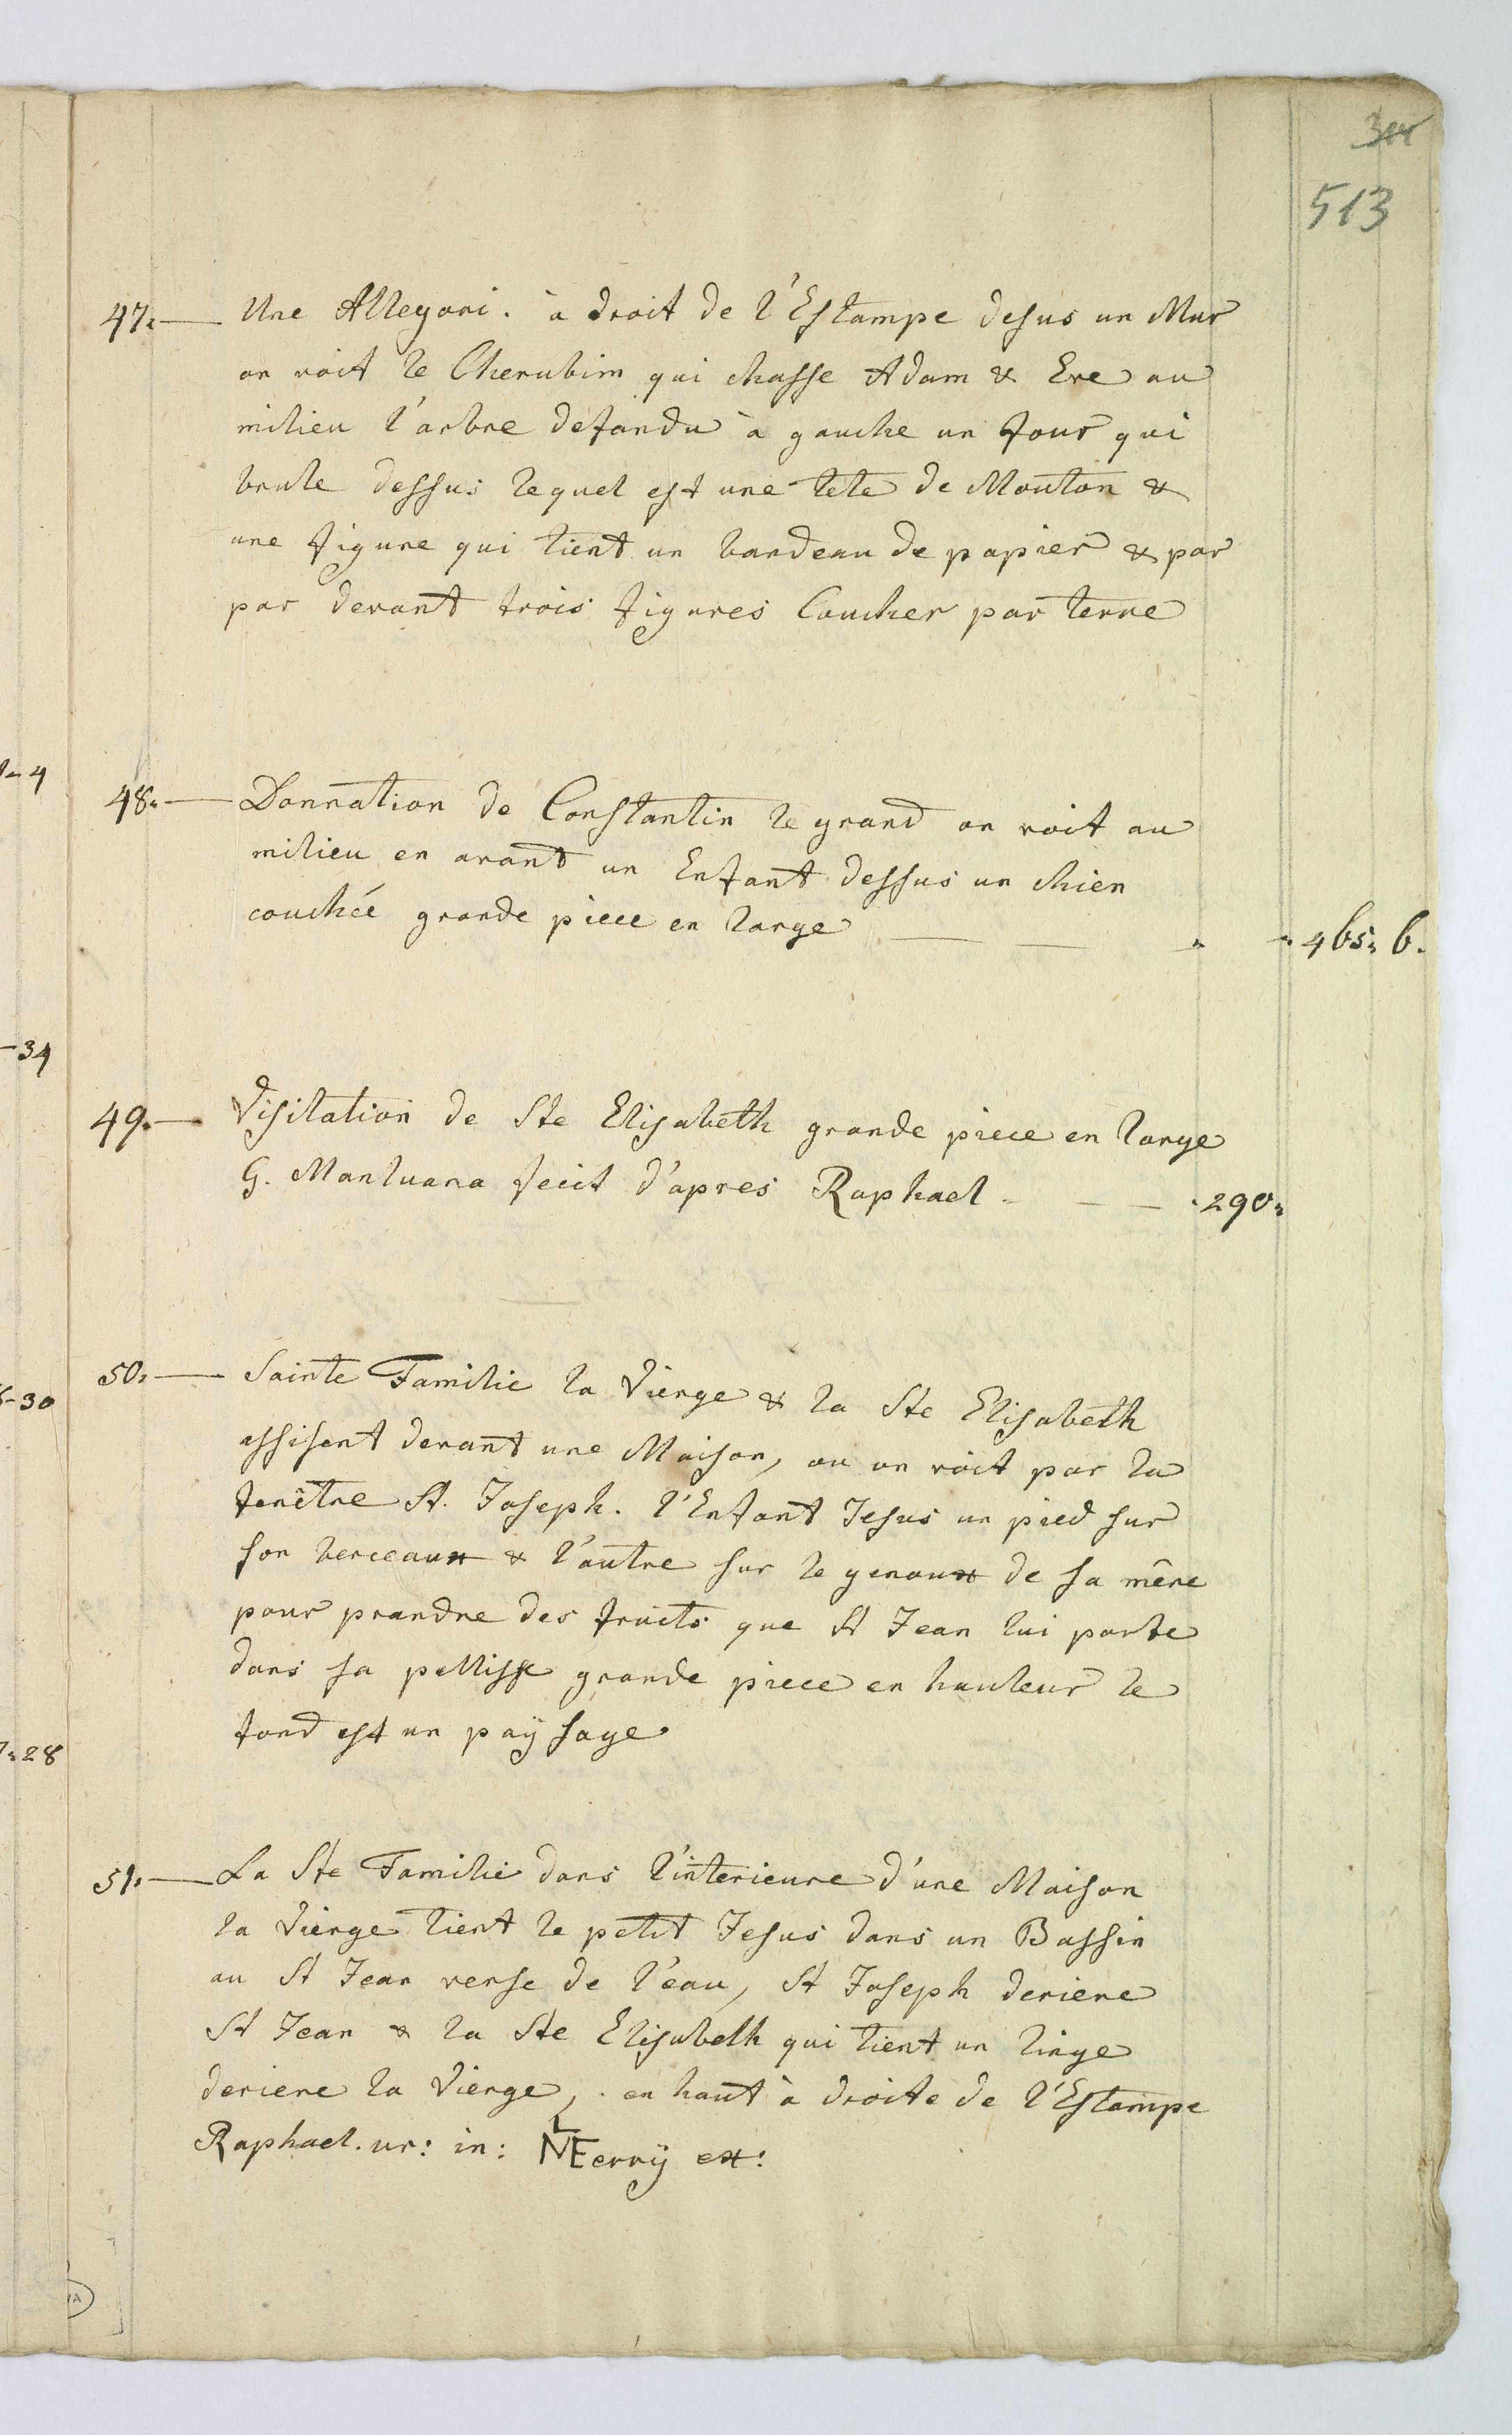 513
47. — Une Allegori. à droit de l'Estampe desus un Mur
on voit le Cherubim qui chasse Adam & Eve au
milieu l'arbre defandu à gauche un four qui
brule dessus lequel est une tete de Mouton &
une figure qui tient un bandeau de papier & par
par devant trois figures Coucher par terre
1-4
48. — Donnation de Constantin le grand on voit au
milieu en avant un Enfant dessus un chien
couchée grande piece en large — — 465. 6.
-34
49. — Visitation de Ste Elisabeth grande piece en large
G. Mantuana fecit d'apres Raphael — — 290.
50. — Sainte Familie la Vierge & la Ste Elisabeth
-30
assisent devant une Maison, ou on voit par la
fenêtre St. Joseph. l'Enfant Jesus un pied sur
son berceaux & l'autre sur le genoux de sa mêre
pour prandre des fruits que St Jean lui porte
dans sa pellisse grande piece en hauteur le
fond est un paÿsage
28
51. — La Ste Familie dans l'interieure d'une Maison
la Vierge tient le petit Jesus dans un Bassin
ou St Jean verse de l'eau, St Joseph deriere
St Jean & la Ste Elisabeth qui tient un linge
deriere la Vierge, . en haut à droite de l'Estampe
Raphael. ur: in: ex: